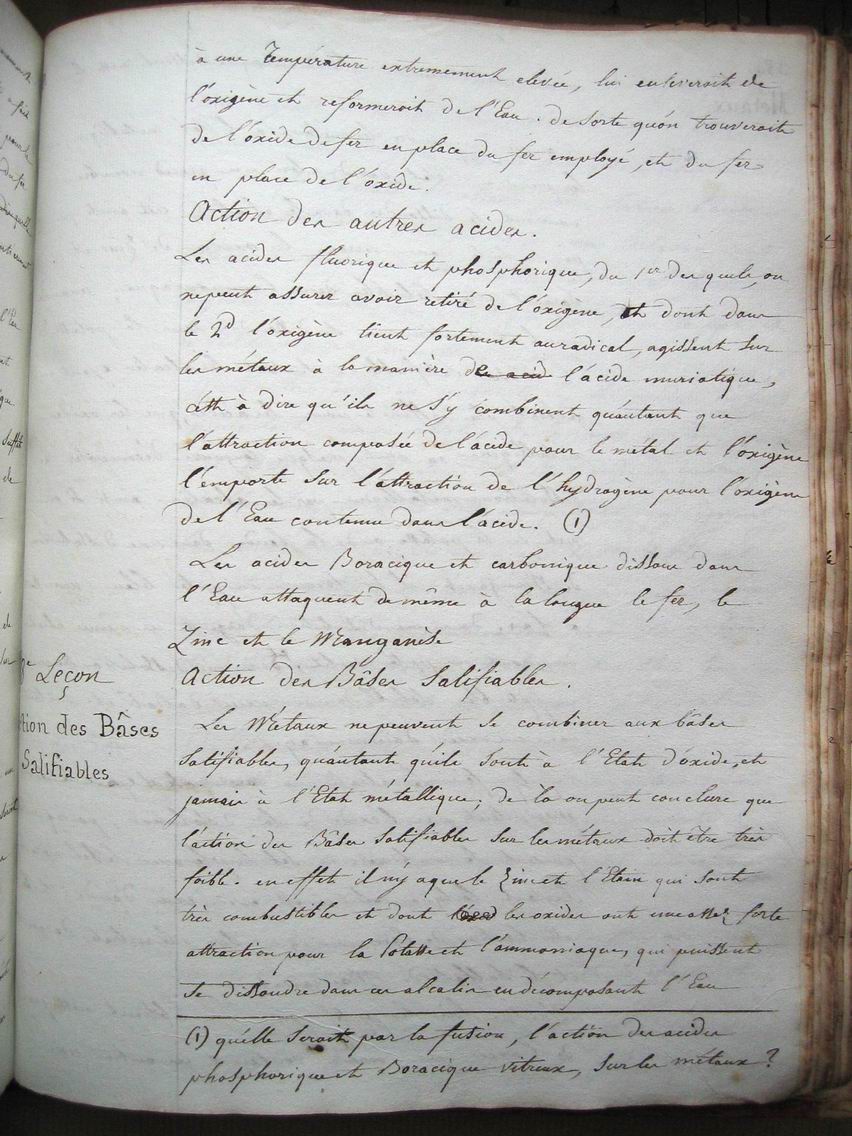 à une Température extremement elevée, lui enleverait de
l'oxigène et reformeroit de l'Eau. de sorte qu'on trouveroit
de l'óxide de fer en place du fer employé, et du fer
en place de l'óxide.
Action des autres acides.
Les acides fluorique et phosphorique, du 1er des quels, on
ne peut assurer avoir retiré de l'óxigene, et dont dans
le 2d l'óxigène tient fortement au radical, agissent sur
les métaux à la manière de l'acide muriatique,
c'est à dire qu'ils ne s'y combinent qu'autant que
l'attraction composée de l'acide pour le métal et l'óxigène
l'emporte sur l'attraction de l'hydrogène pour l'óxigène
de l'Eau contenue dans l'acide. (1)
Les acides Boracique et carbonique dissous dans
l'Eau attaquent de même à la longue le fer, le
Zinc et le Manganèse
8e Leçon
Action des Bâses Salifiables.
tion des Bâses
Salifiables
Les Métaux ne peuvent se combiner aux bâses
Salifiables, qu'autant qu'ils sont à l'Etat d'óxide, et
jamais à l'Etat métallique; de là on peut conclure que
l'action des Bâses Salifiables sur les métaux doit être très
foible. en effet il n'y a que le Zinc et l'Etain qui sont
très combustibles et dont les oxides ont une assez forte
attraction pour la Potasse et l'ammoniaque, qui puissent
se dissoudre dans ces alcalis en décomposant l'Eau
(1) qu'elle seroit par la fusion, l'action des acides
phosphorique et Boracique vitreux, sur les métaux?